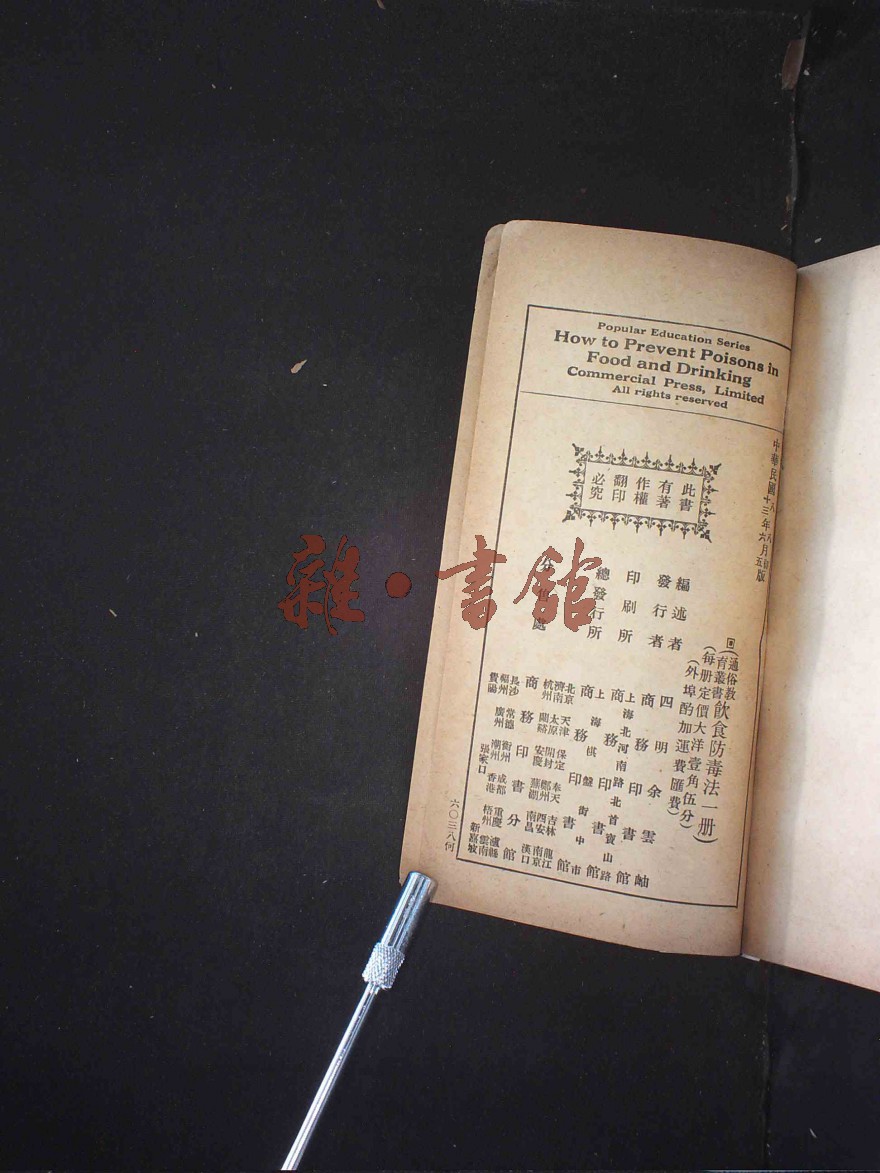 Popular Education Series
How to Prevent Poisons in
Food and Drinking
Commercial Press, Limited
All rights reserved
此書
有著
作權
翻印
必究
中華民國
十三年六月五版
(通俗教
育叢書
飲食防毒法一册)
(每册定價大洋壹角伍分)
(外埠酌加運費匯費)
編述者 四明余雲岫
發行者 商務印書館
上海北河南路北首寶山路
印刷所 商務印書館
上海棋盤街中市
總發行所 商務印書館
處 商務印書分館
北京 天津 保定 奉天 吉林 龍江
濟南 太原 開封 鄭州 西安 南京
杭州 安慶 蕪湖 南昌 漢口
長沙 常德 衡州 成都 重慶 瀘縣
福州 廣州 潮州 香港 梧州 雲南
貴陽 張家口 新嘉坡
六〇三八何
雜·書館